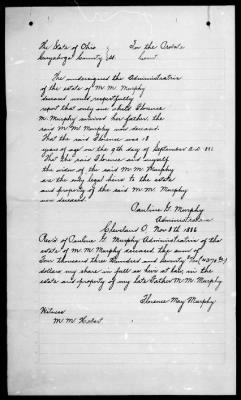 The State of Ohio } In the Probate
Cuyahoga County } SS. Court.
The undersigned the Administratrix
of the estate of M M Murphy
deceased would respectfully
report that only one child Florence
M Murphy survived her father the
said M M Murphy now deceased.
That the said Florence was 18
years of age on the 9th day of September A.D. 188
That the said Florence and myself
the widow of the said M M Murphy
are the only legal heirs to the estate
and property of the said M M Murphy
now deceased.
Pauline G. Murphy
Administratrix
Cleveland O. Nov 8th 1886
Rec'd of Pauline G. Murphy Administratrix of the
estate of M. M. Murphy deceased the sum of
Four thousand three Hundred and Seventy (4370)
dollars my share in full as heir at law, in the
estate and property of my late Father M M Murphy
Florence May Murphy
Witness
M. M. Hobart